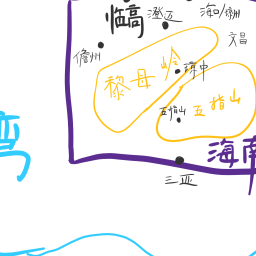 临高
澄迈
海口/琼州
文昌
儋州
黎母岭
琼中
五指山
五指山
湾
海南
三亚